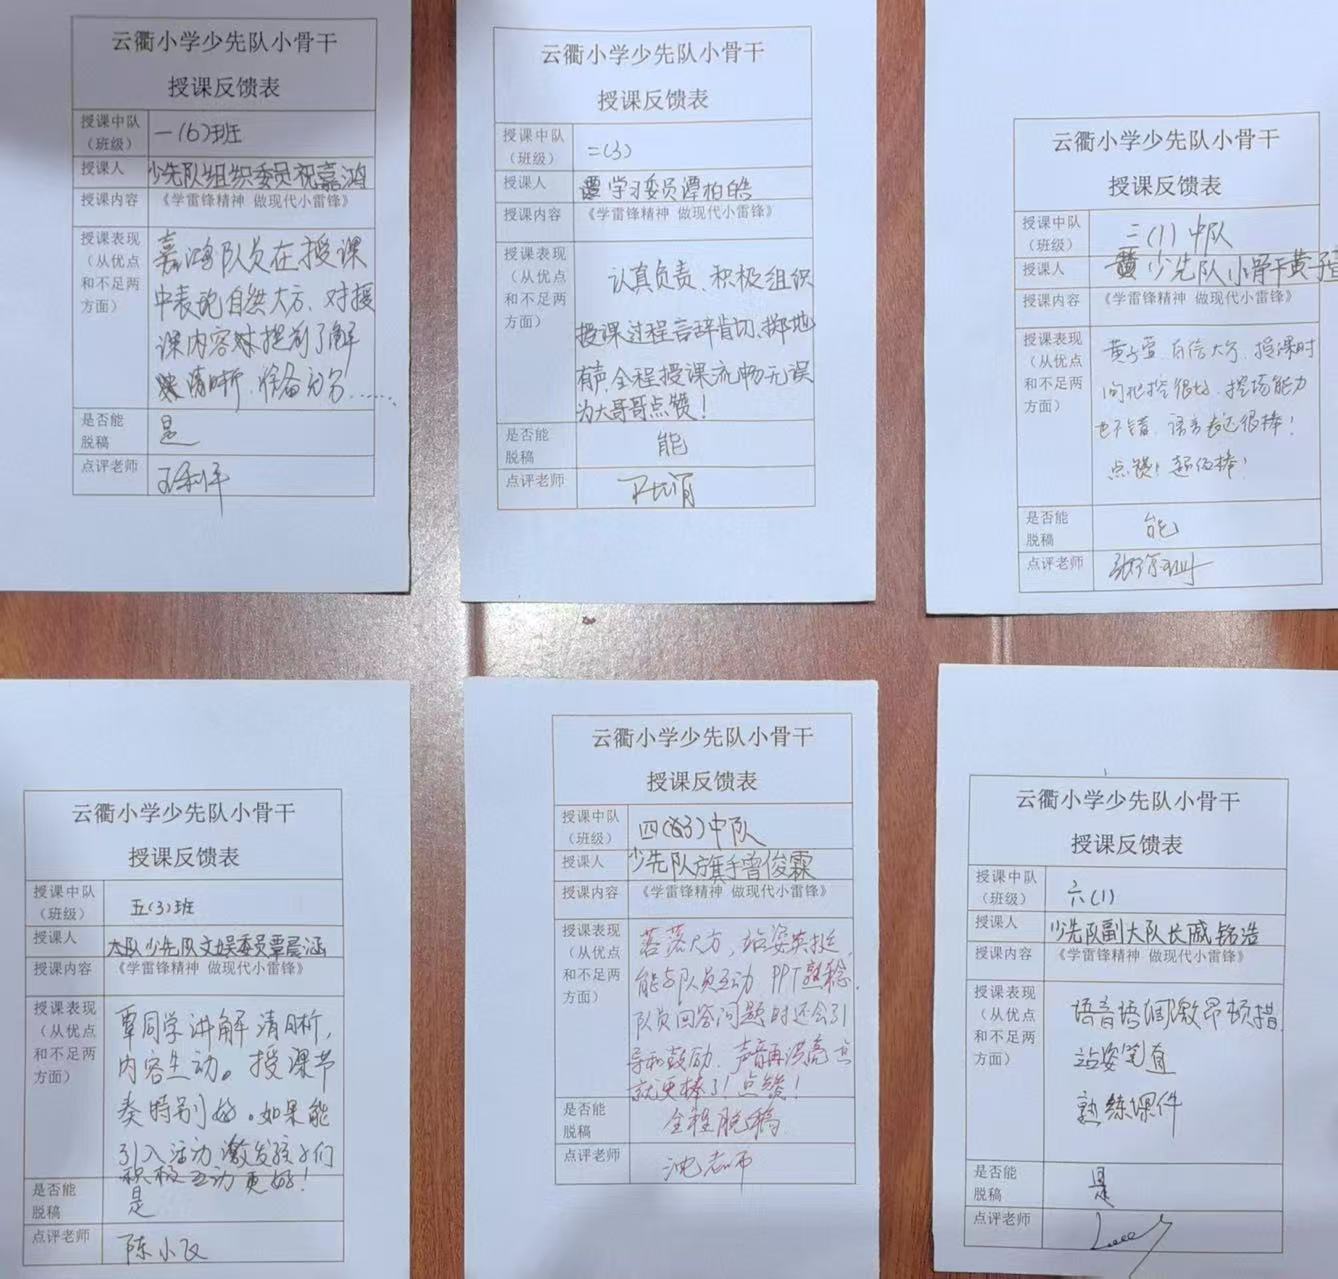 云衢小学少先队小骨干
授课反馈表
授课中队
（班级）
一(6)班
授课人
少先队组织委员祝嘉鸿
授课内容
《学雷锋精神 做现代小雷锋》
授课表现
（从优点
和不足两
方面）
嘉鸿队员在授课
中表现自然大方、对授
课内容 提前了解
清晰、准备充分……
是否能
脱稿
是
点评老师
云衢小学少先队小骨干
授课反馈表
授课中队
（班级）
二(3)
授课人
学习委员谭柏皓
授课内容
《学雷锋精神 做现代小雷锋》
授课表现
（从优点
和不足两
方面）
认真负责、积极组织
授课过程言辞肯切、掷地
有声、全程授课流畅无误
为大哥哥点赞！
是否能
脱稿
能
点评老师
云衢小学少先队小骨干
授课反馈表
授课中队
（班级）
三(1)中队
授课人
少先队小骨干黄子
授课内容
《学雷锋精神 做现代小雷锋》
授课表现
（从优点
和不足两
方面）
黄子 自信大方、授课时
间把控很好、控场能力
也不错、语言表达很棒！
点赞！超级棒！
是否能
脱稿
能
点评老师
云衢小学少先队小骨干
授课反馈表
授课中队
（班级）
五(3)班
授课人
大队少先队文娱委员覃晨涵
授课内容
《学雷锋精神 做现代小雷锋》
授课表现
（从优点
和不足两
方面）
覃同学讲解清晰，
内容生动。授课节
奏特别好。如果能
引入活动激发孩子们
积极互动更好！
是否能
脱稿
是
点评老师
陈小飞
云衢小学少先队小骨干
授课反馈表
授课中队
（班级）
四(3)中队
授课人
少先队旗手曾俊霖
授课内容
《学雷锋精神 做现代小雷锋》
授课表现
（从优点
和不足两
方面）
落落大方，站姿英挺，
能与队员互动 PPT熟稔，
队员回答问题时还会引
导和鼓励。声音再洪亮点
就更棒了！点赞！
是否能
脱稿
全程脱稿
点评老师
沈老师
云衢小学少先队小骨干
授课反馈表
授课中队
（班级）
六(1)
授课人
少先队副大队长戚铭浩
授课内容
《学雷锋精神 做现代小雷锋》
授课表现
（从优点
和不足两
方面）
语音语调激昂顿措
站姿笔直
熟练课件
是否能
脱稿
是
点评老师